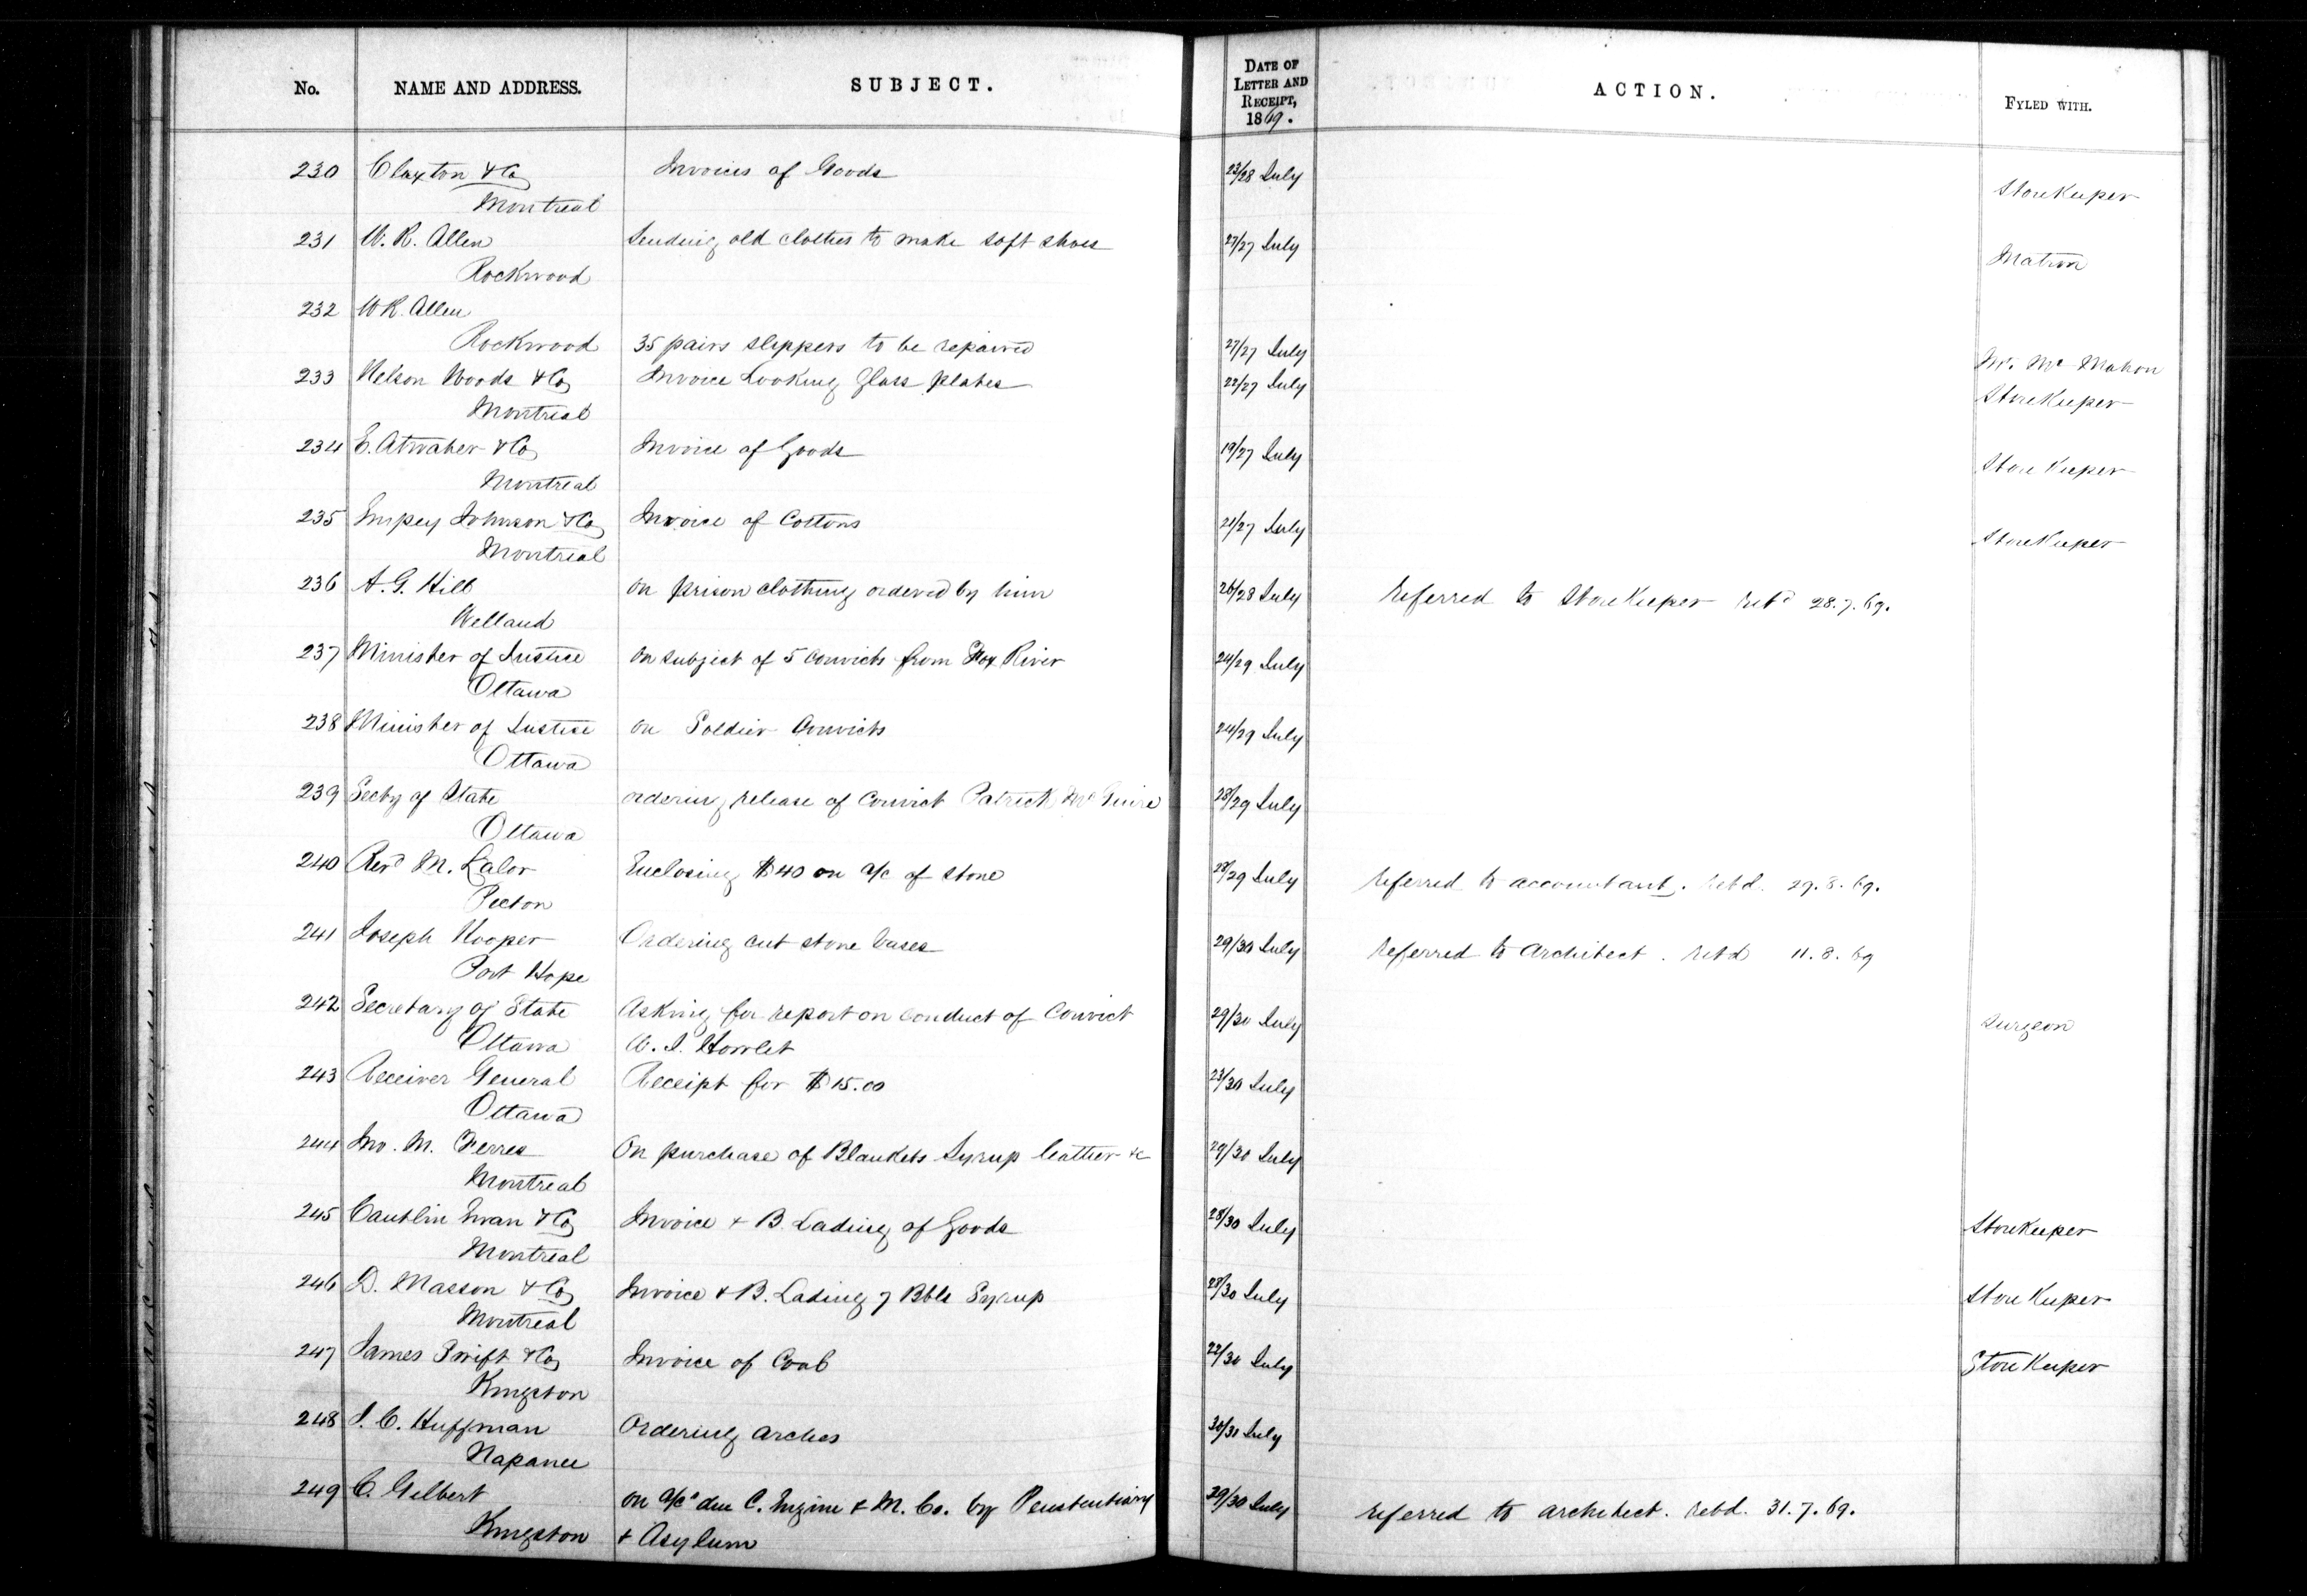 No. NAME AND ADDRESS. SUBJECT. DATE OF LETTER AND RECEIPT, 1869. ACTION. FYLED WITH.
230 Claxton & Co Invoices of Goods 23/28 July
Montreal Storekeeper
231 W. R. Allen Sending old clothes to make soft shoes 27/27 July
Rockwood Matron
232 W R. Allen
Rockwood 35 pairs slippers to be repaired 27/27 July Mr. Mc Mahon
233 Nelson Woods & Co Invoice Looking Glass plates 22/27 July Storekeeper
Montreal
234 E. Atwater & Co Invoice of Goods 19/27 July
Montreal Store Keeper
235 Empey Johnson & Co Invoice of Cottons 21/27 July
Montreal Storekeeper
236 A. G. Hill on prison clothing ordered by him 26/28 July Referred to Storekeeper retd 28.7.69.
Welland
237 Minister of Justice on subject of 5 Convicts from Fox River 24/29 July
Ottawa
238 Minister of Justice on Soldier Convicts 24/29 July
Ottawa
239 Secty of State ordering release of Convict Patrick McGuire 28/29 July
Ottawa
240 Revd M. Lalor Enclosing $40 on a/c of stone 28/29 July referred to accountant. retd. 29.8.69.
Picton
241 Joseph Hooper Ordering cut stone bases 29/30 July Referred to Architect. retd 11.8.69
Port Hope
242 Secretary of State Asking for report on conduct of Convict 29/30 July Surgeon
Ottawa W. J. Howlet
243 Receiver General Receipt for $15.00 23/30 July
Ottawa
244 Jno. M. Ferres On purchase of Blankets Syrup leather &c 29/30 July
Montreal
245 Cantlin Ewan & Co Invoice & B. Lading of Goods 28/30 July Storekeeper
Montreal
246 D. Masson & Co Invoice & B. Lading 7 Bbls Syrup 28/30 July Store Keeper
Montreal
247 James Swift & Co Invoice of Coal 22/30 July Store Keeper
Kingston
248 J. C. Huffman Ordering arches 30/31 July
Napanee
249 C. Gilbert on a/cs due C. Engine & M. Co. by Penitentiary 29/30 July referred to architect. retd. 31.7.69.
Kingston & Asylum